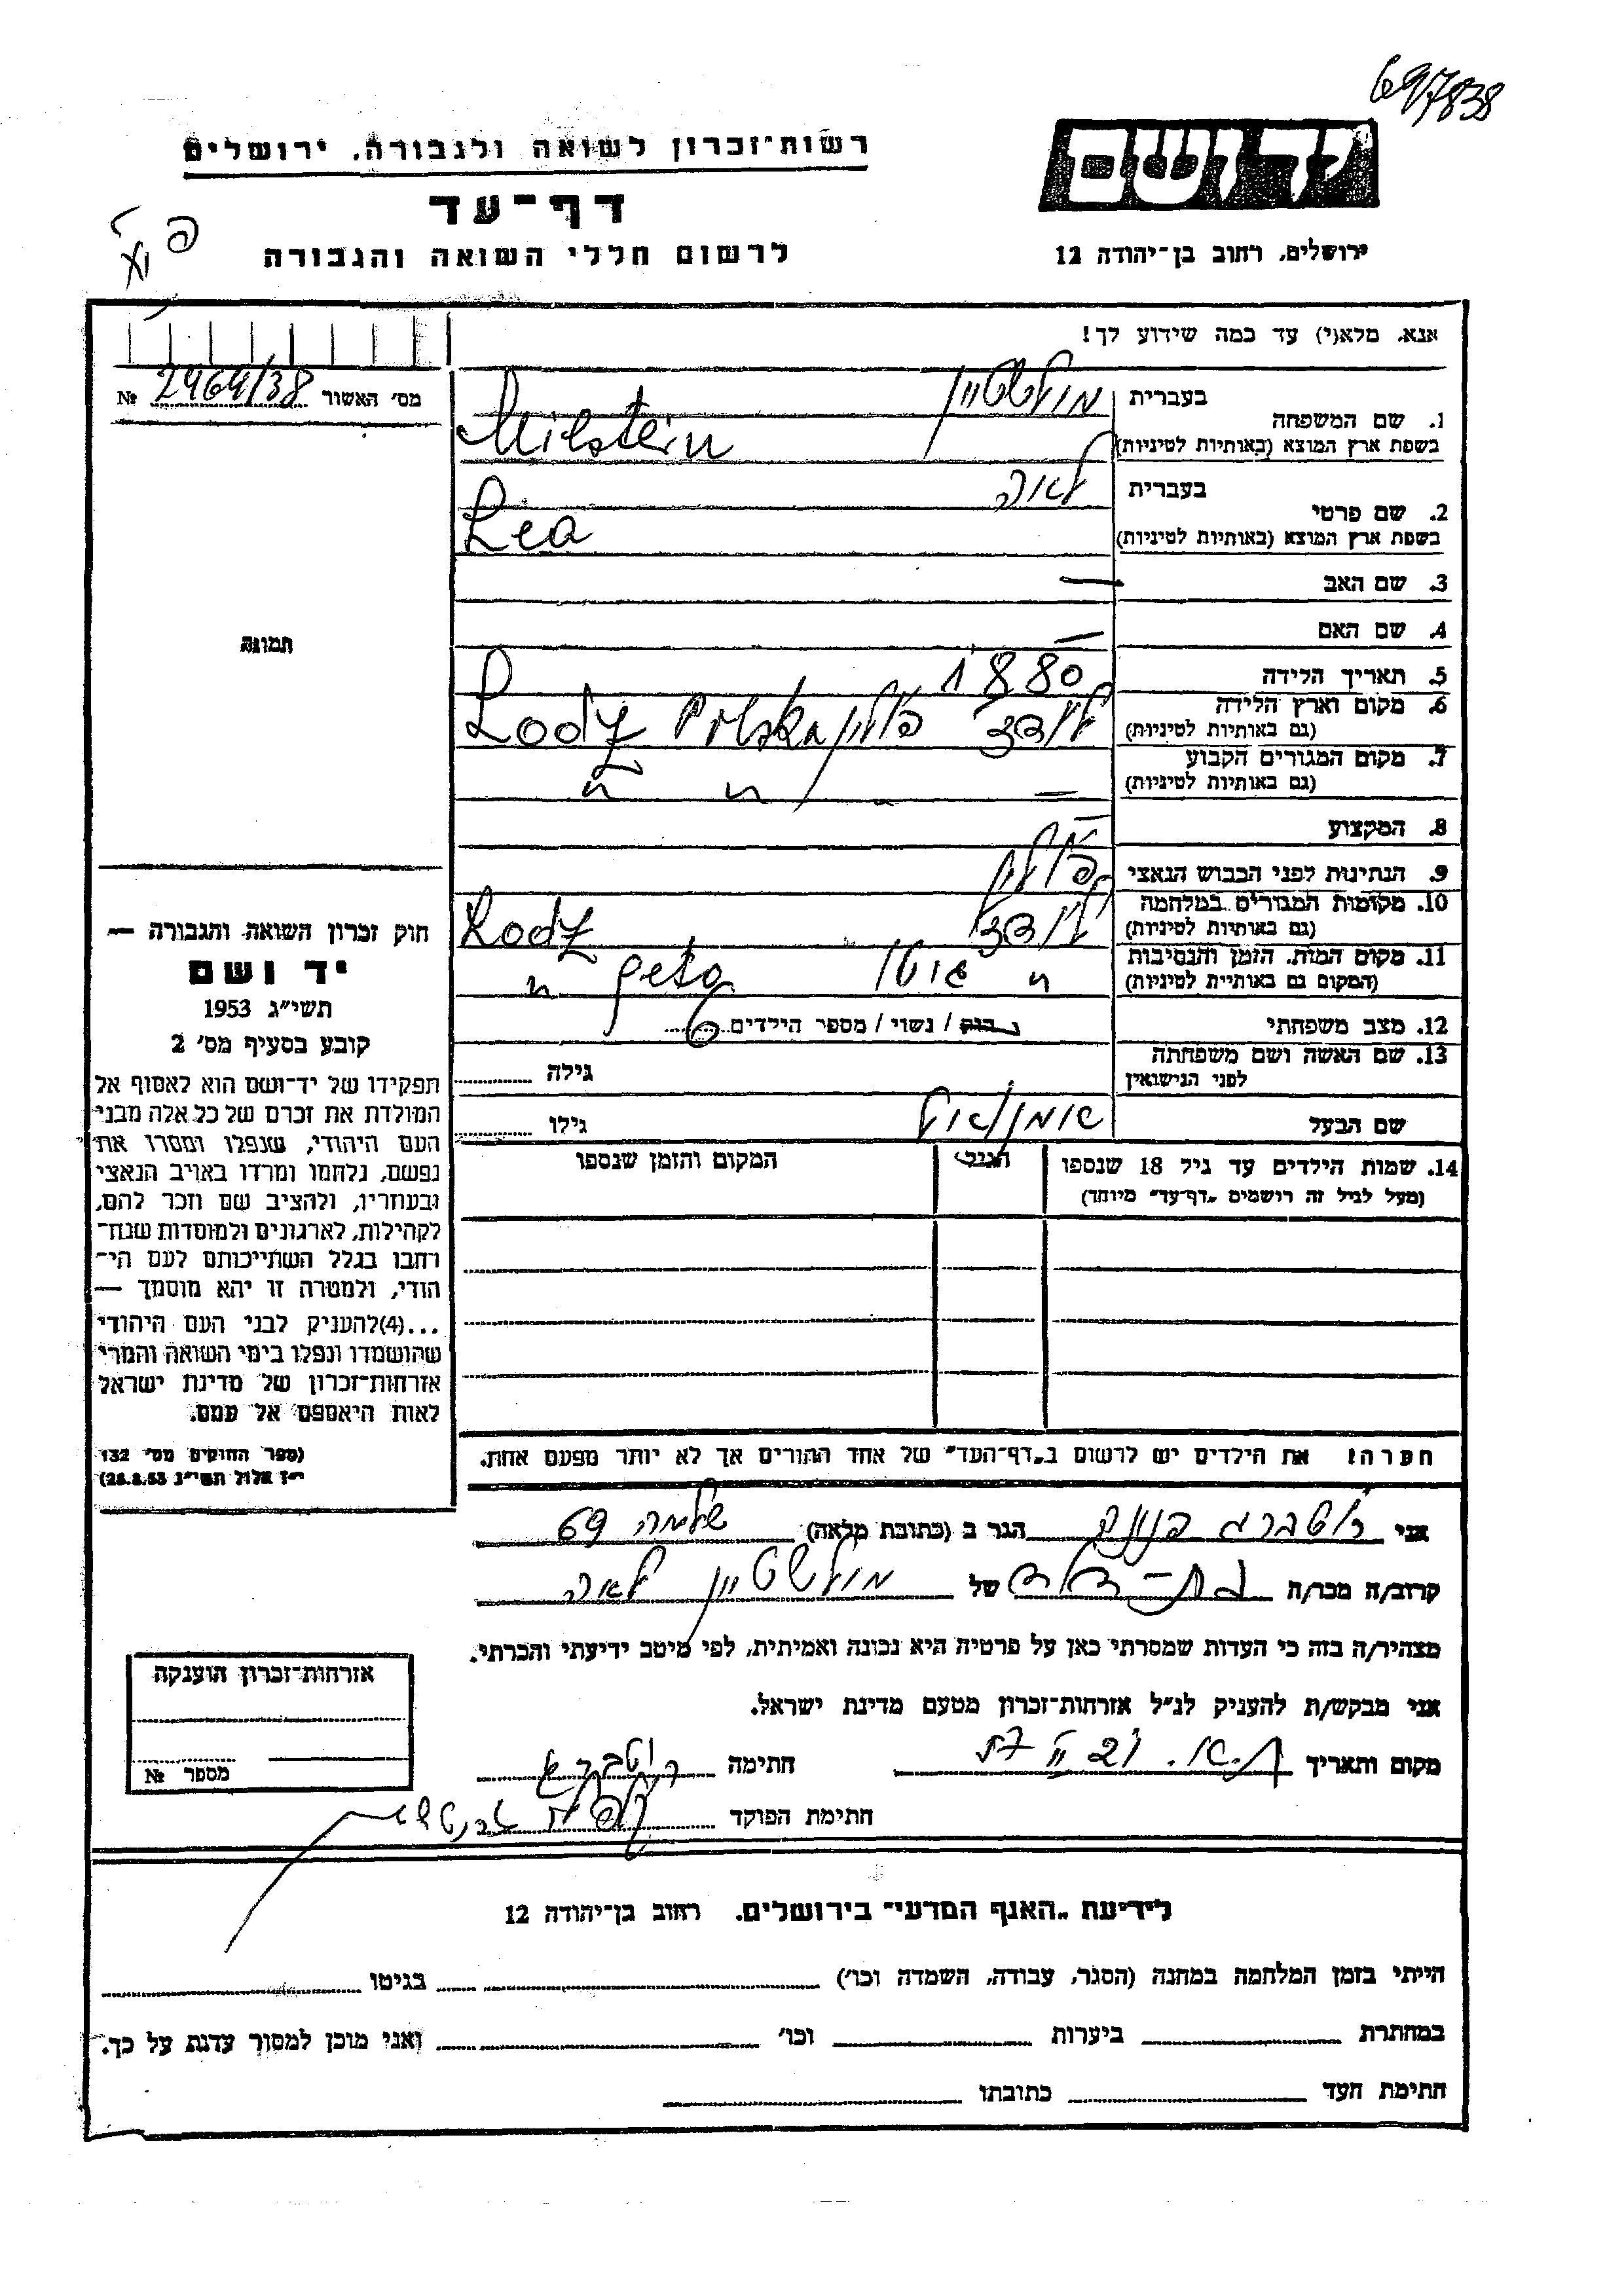 697838
יד ושם
רשות־זכרון לשואה ולגבורה, ירושלים
דף־עד
לרשום חללי השואה והגבורה
ירושלים, רחוב בן־יהודה 12
אנא, מלא(י) עד כמה שידוע לך!
מס׳ האשור 2464/38 №
1. שם המשפחה
בעברית מילשטיין
בשפת ארץ המוצא (באותיות לטיניות) Milstein
2. שם פרטי
בעברית לאה
בשפת ארץ המוצא (באותיות לטיניות) Lea
3. שם האב —
4. שם האם —
5. תאריך הלידה 1880
6. מקום וארץ הלידה (גם באותיות לטיניות) לודז׳ פולין Lodz Polska
7. מקום המגורים הקבוע (גם באותיות לטיניות) — " " "
8. המקצוע —
9. הנתינות לפני הכבוש הנאצי פולין
10. מקומות המגורים במלחמה (גם באותיות לטיניות) לודז׳ Lodz
11. מקום המות, הזמן והנסיבות (המקום גם באותיות לטיניות) " גיטו geto "
12. מצב משפחתי רוק / נשוי / מספר הילדים 6
13. שם האשה ושם משפחתה לפני הנישואין גילה
שם הבעל גילו
14. שמות הילדים עד גיל 18 שנספו
(מעל לגיל זה רושמים „דף־עד״ מיוחד)
הגיל
המקום והזמן שנספו
הערה! את הילדים יש לרשום ב„דף־העד״ של אחד ההורים אך לא יותר מפעם אחת.
תמונה
חוק זכרון השואה והגבורה —
יד ושם
תשי״ג 1953
קובע בסעיף מס׳ 2
תפקידו של יד־ושם הוא לאסוף אל
המולדת את זכרם של כל אלה מבני
העם היהודי, שנפלו ומסרו את
נפשם, נלחמו ומרדו באויב הנאצי
ובעוזריו, ולהציב שם וזכר להם,
לקהילות, לארגונים ולמוסדות שנח־
רבו בגלל השתייכותם לעם הי־
הודי, ולמטרה זו יהא מוסמך —
...(4)להעניק לבני העם היהודי
שהושמדו ונפלו בימי השואה והמרי
אזרחות־זכרון של מדינת ישראל
לאות היאספם אל עמם.
(ספר החוקים מס׳ 132
י״ז אלול תשי״ג 28.8.53)
אני הגר ב (כתובת מלאה) שלמה 69
קרוב/ה מכר/ה של מילשטיין לאה
מצהיר/ה בזה כי העדות שמסרתי כאן על פרטיה היא נכונה ואמיתית, לפי מיטב ידיעתי והכרתי.
אני מבקש/ת להעניק לנ״ל אזרחות־זכרון מטעם מדינת ישראל.
מקום ותאריך חתימה
חתימת הפוקד
אזרחות־זכרון הוענקה
מספר №
לידיעת „האגף המדעי״ בירושלים, רחוב בן־יהודה 12
הייתי בזמן המלחמה במחנה (הסגר, עבודה, השמדה וכו׳) בגיטו
במחתרת ביערות וכו׳ ואני מוכן למסור עדות על כך.
חתימת העד כתובתו